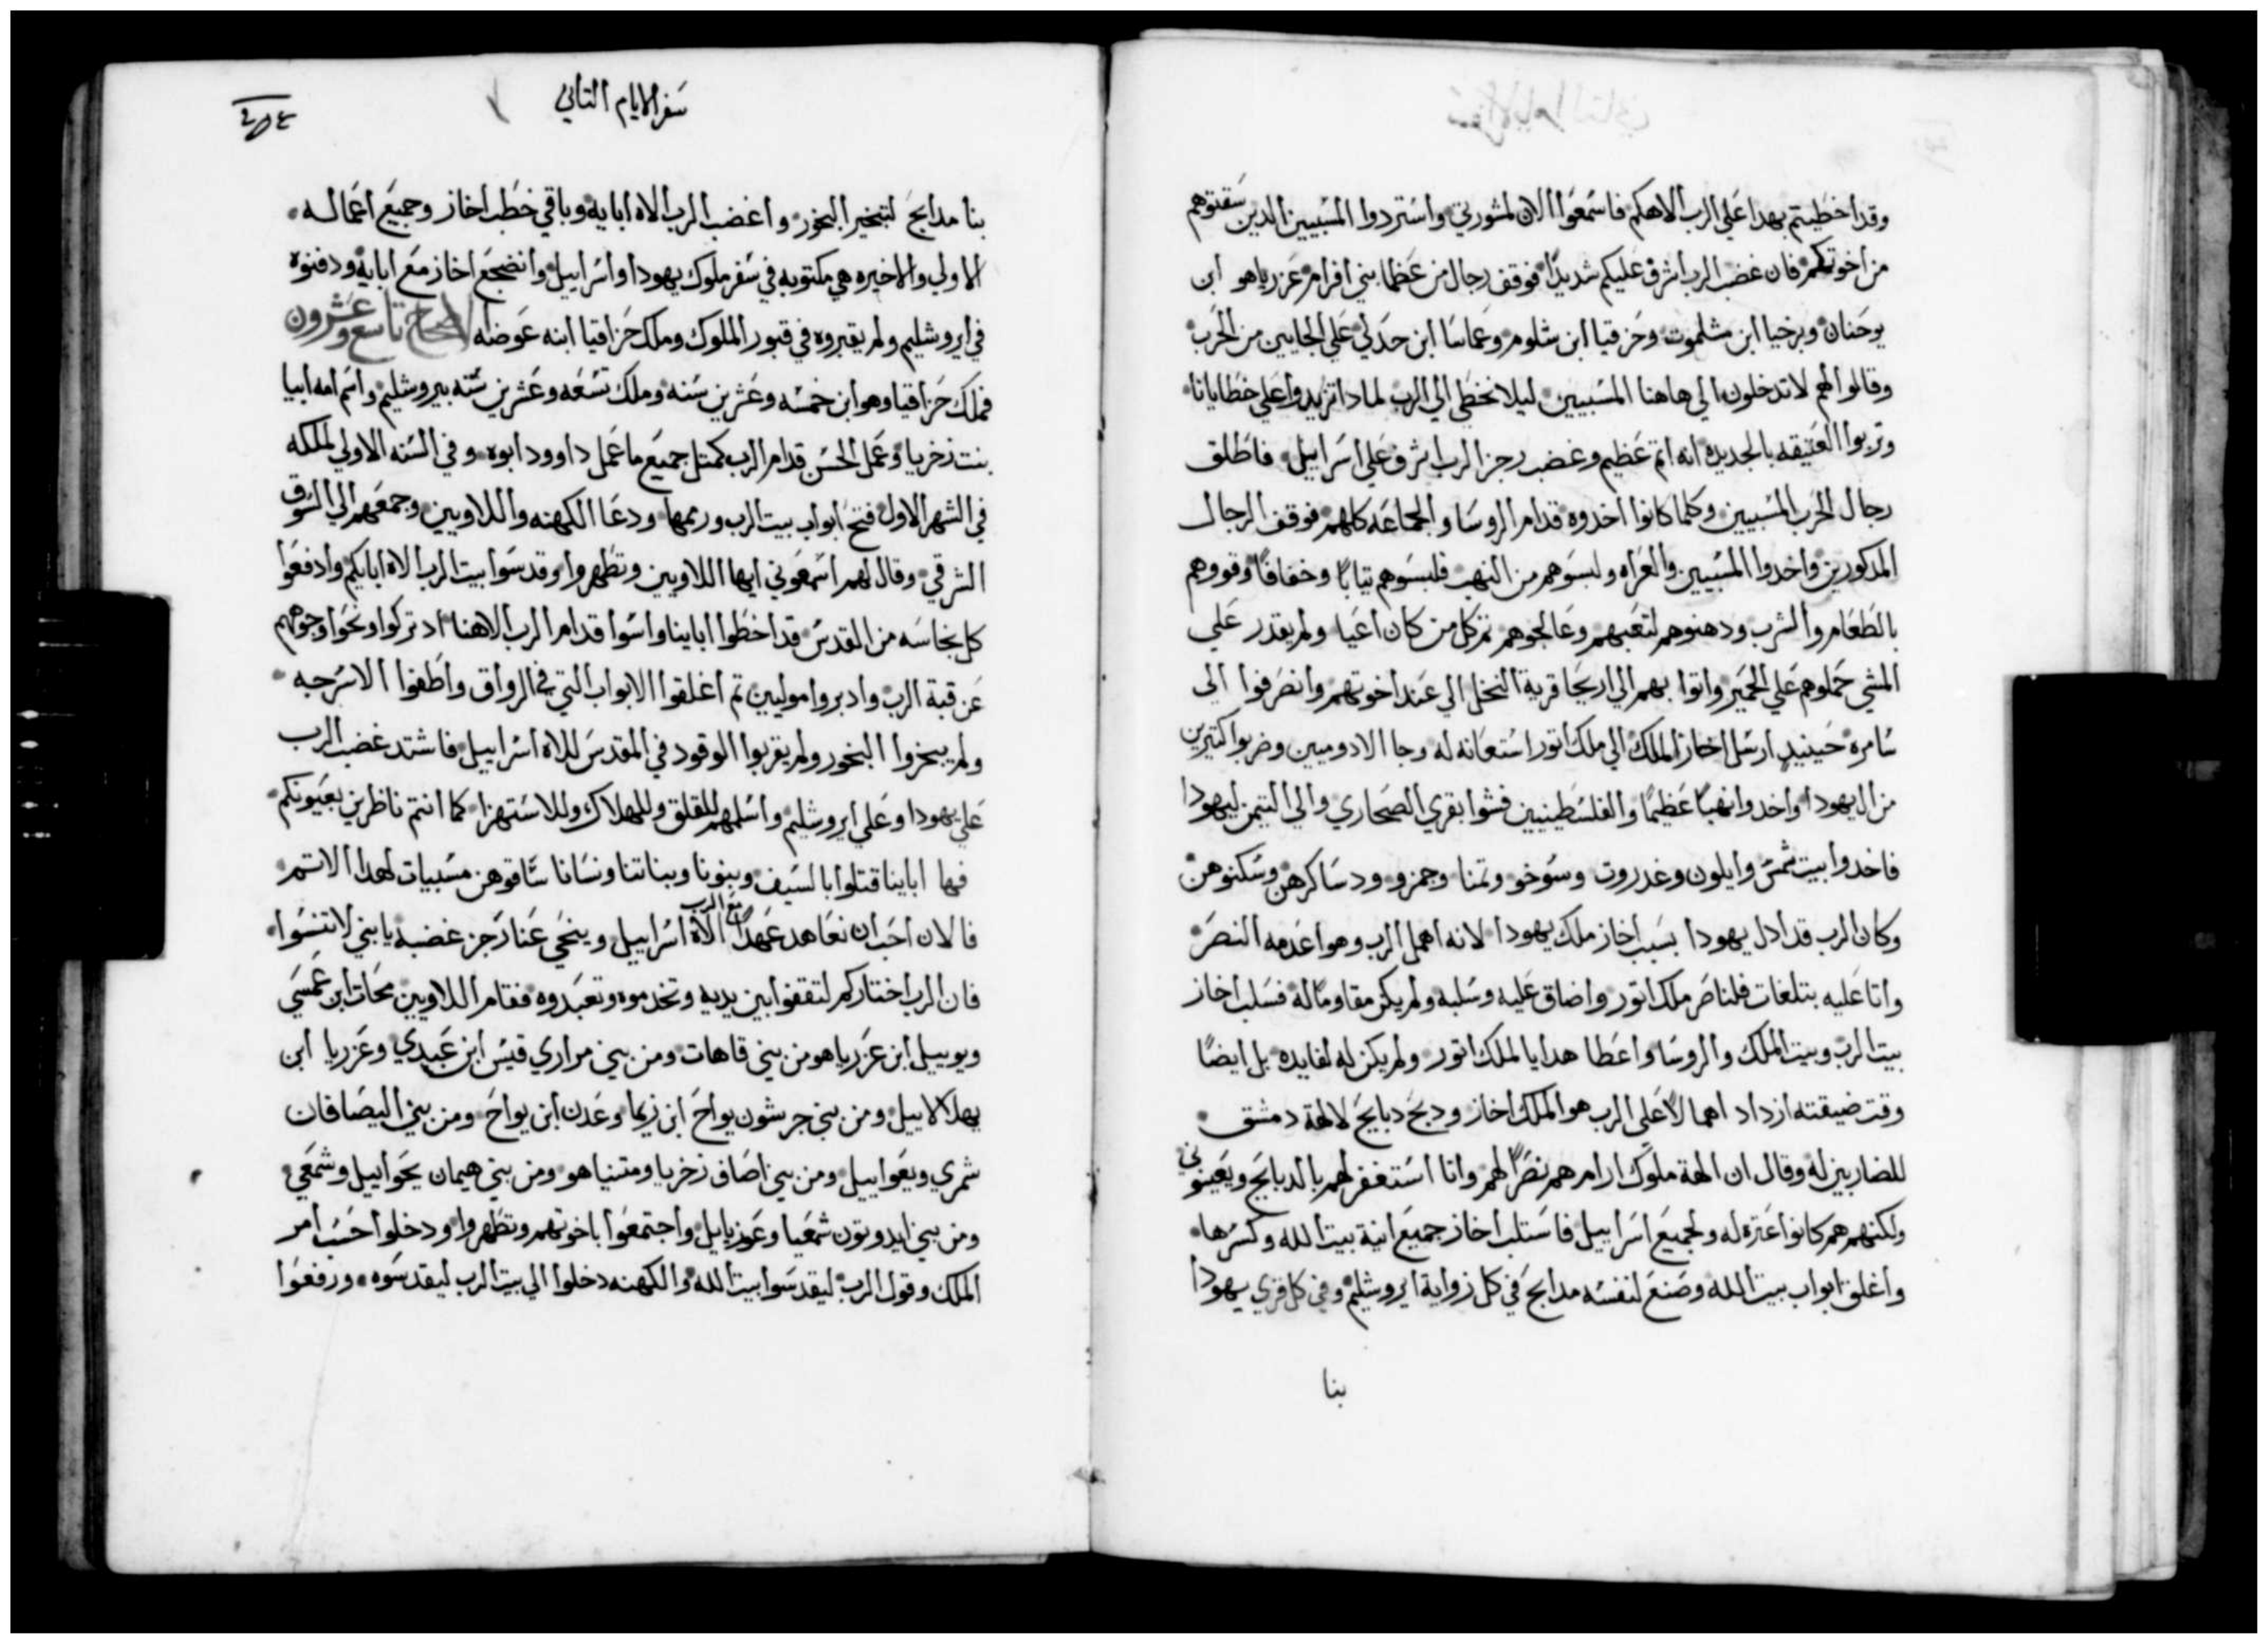 وقد اخطيتم بهدا علي الرب الاهكم فاسمعوا الان لمشورتي واستردوا المسبيين الدين سقتوهم
من اخوتكم فان غضب الرب اشرف عليكم شديدًا فوقف رجال من عظما بني افرام عزرياهو ابن
يوحنان وبرخيا ابن مشلموت وحزقيا ابن شلوم وعماسا ابن حدلي علي الجايين من الحرب
وقالوا لهم لا تدخلون الي هاهنا المسبيين ليلا نخطي الي الرب لمادا تزيدوا علي خطايانا
وتربوا العتيقه بالجديده انه اتم عظيم وغضب رجز الرب اشرف علي اسراييل فاطلق
رجال الحرب المسبيين وكلما كانوا اخدوه قدام الروسا والجماعه كلهم فوقف الرجال
المدكورين واخدوا المسبيين والعراه ولبسوهم من النهب فلبسوهم تيابًا وخفافًا وقووهم
بالطعام والشرب ودهنوهم لتعبهم وعالجوهم تم كل من كان اعيا ولم يقدر علي
المشي حملوهم علي الحمير واتوا بهم الي اريحا قرية النخل الي عند اخوتهم وانصرفوا الي
سامره حينيد ارسل اخاز الملك الي ملك اتور استعانه له وجا الادوميين وضربوا كتيرين
من ال يهودا واخدوا نهبًا عظيمًا والفلسطينيين فشوا بقري الصحاري والي التيمن ليهودا
فاخدوا بيت شمس وايلون وغدروت وسوخو وتمنا وجمزو ودساكرهن وسكنوهن
وكان الرب قد ادل يهودا بسبب اخاز ملك يهودا لانه اهمل الرب وهو اعدمه النصر
واتا عليه بتلغات فلناصر ملك اتور واضاق عليه وسلبه ولم يكن مقاومًا له فسلب اخاز
بيت الرب وبيت الملك والروسا واعطا هدايا لملك اتور ولم يكن له لفايده بل ايضًا
وقت ضيقته ازداد اهمالًا علي الرب هو الملك اخاز ودبح دبايح لالهة دمشق
للضاربين له وقال ان الهة ملوك ارام هم نصرًا لهم وانا استغفر لهم بالدبايح ويعينوني
ولكنهم هم كانوا عتره له ولجميع اسراييل فاستلب اخاز جميع انية بيت الله وكسرها
واغلق ابواب بيت الله وصنع لنفسه مدابح في كل زواية ايروشليم وفي كل قري يهودا
بنا
سفر الايام التاني
بنا مدابح لتبخير البخور واغضب الرب الاه ابايه وباقي خطب اخاز وجميع اعماله
الاولي والاخيره هي مكتوبه في سفر ملوك يهودا واسراييل وانضجع اخاز مع ابايه ودفنوه
في ايروشليم ولم يقبروه في قبور الملوك وملك حزاقيا ابنه عوضه الاصحاح تاسع وعشرون
فملك حزاقيا وهو ابن خمسه وعشرين سنه وملك تسعه وعشرين سنه بيروشليم واسم امه ابيا
بنت زخريا وعمل الحسن قدام الرب كمتل جميع ما عمل داوود ابوه وفي السنه الاولي لملكه
في الشهر الاول فتح ابواب بيت الرب ورمها ودعا الكهنه واللاويين وجمعهم الي السوق
الشرقي وقال لهم اسمعوني ايها اللاويين وتطهروا وقدسوا بيت الرب الاه ابايكم وادفعوا
كل نجاسه من القدس قد اخطوا ابايناواسوا قدام الرب الاهنا اد تركوا ونحوا وجوههم
عن قبة الرب وادبروا موليين تم اغلقوا الابواب التي في الرواق واطفوا الاسرجه
ولم يبخروا البخور ولم يقربوا الوقود في المقدس للاه اسراييل فاشتد غضب الرب
علي يهودا وعلي ايروشليم واسلمهم للقلق وللهلاك وللاستهزا كما انتم ناظرين بعيونكم
فها اباينا قتلوا بالسيف وبنونا وبناتنا ونسانا ساقوهن مسبيات لهدا الاتم
فالان احب ان نعاهد عهدًا مع الرب الاه اسراييل وينحي عنا رجز غضبه يا بني لا تنسوا
فان الرب اختاركم لتقفوا بين يديه وتخدموه وتعبدوه فقام اللاويين محات ابن عمسي
ويوييل ابن عزرياهو من بني قاهات ومن بني مراري قيس ابن عبدي وعزريا ابن
يهلالاييل ومن بني جرشون يواح ابن زيما وعدن ابن يواح ومن بني اليصافان
شمري ويعواييل ومن بني اصاف زخريا ومتنياهو ومن بني هيمان يحواييل وشمعي
ومن بني ايدوتون شمعيا وعوزيايل واجتمعوا باخوتهم وتطهروا ودخلوا حسب امر
الملك وقول الرب ليقدسوا بيت الله والكهنه دخلوا الي بيت الرب ليقدسوه ورفعوا